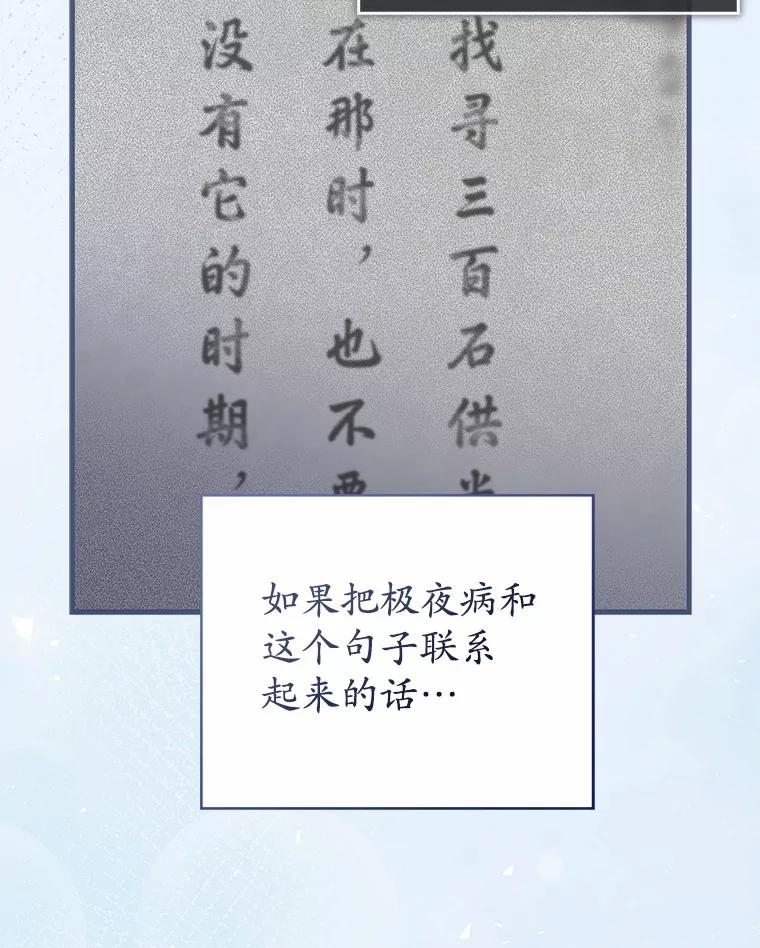 找寻三百石供
在那时，也不要
没有它的时期，
如果把极夜病和
这个句子联系
起来的话…